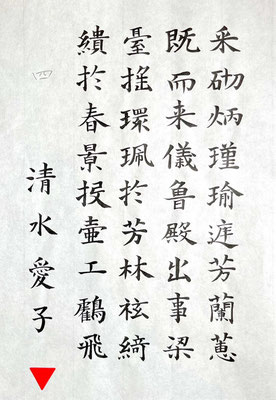 采砌炳瑾瑜庭芳蘭蕙
既而来儀魯殿出事梁
臺揺環珮於芳林袨綺
繢於春景投壷工鸖飛
四
清水愛子